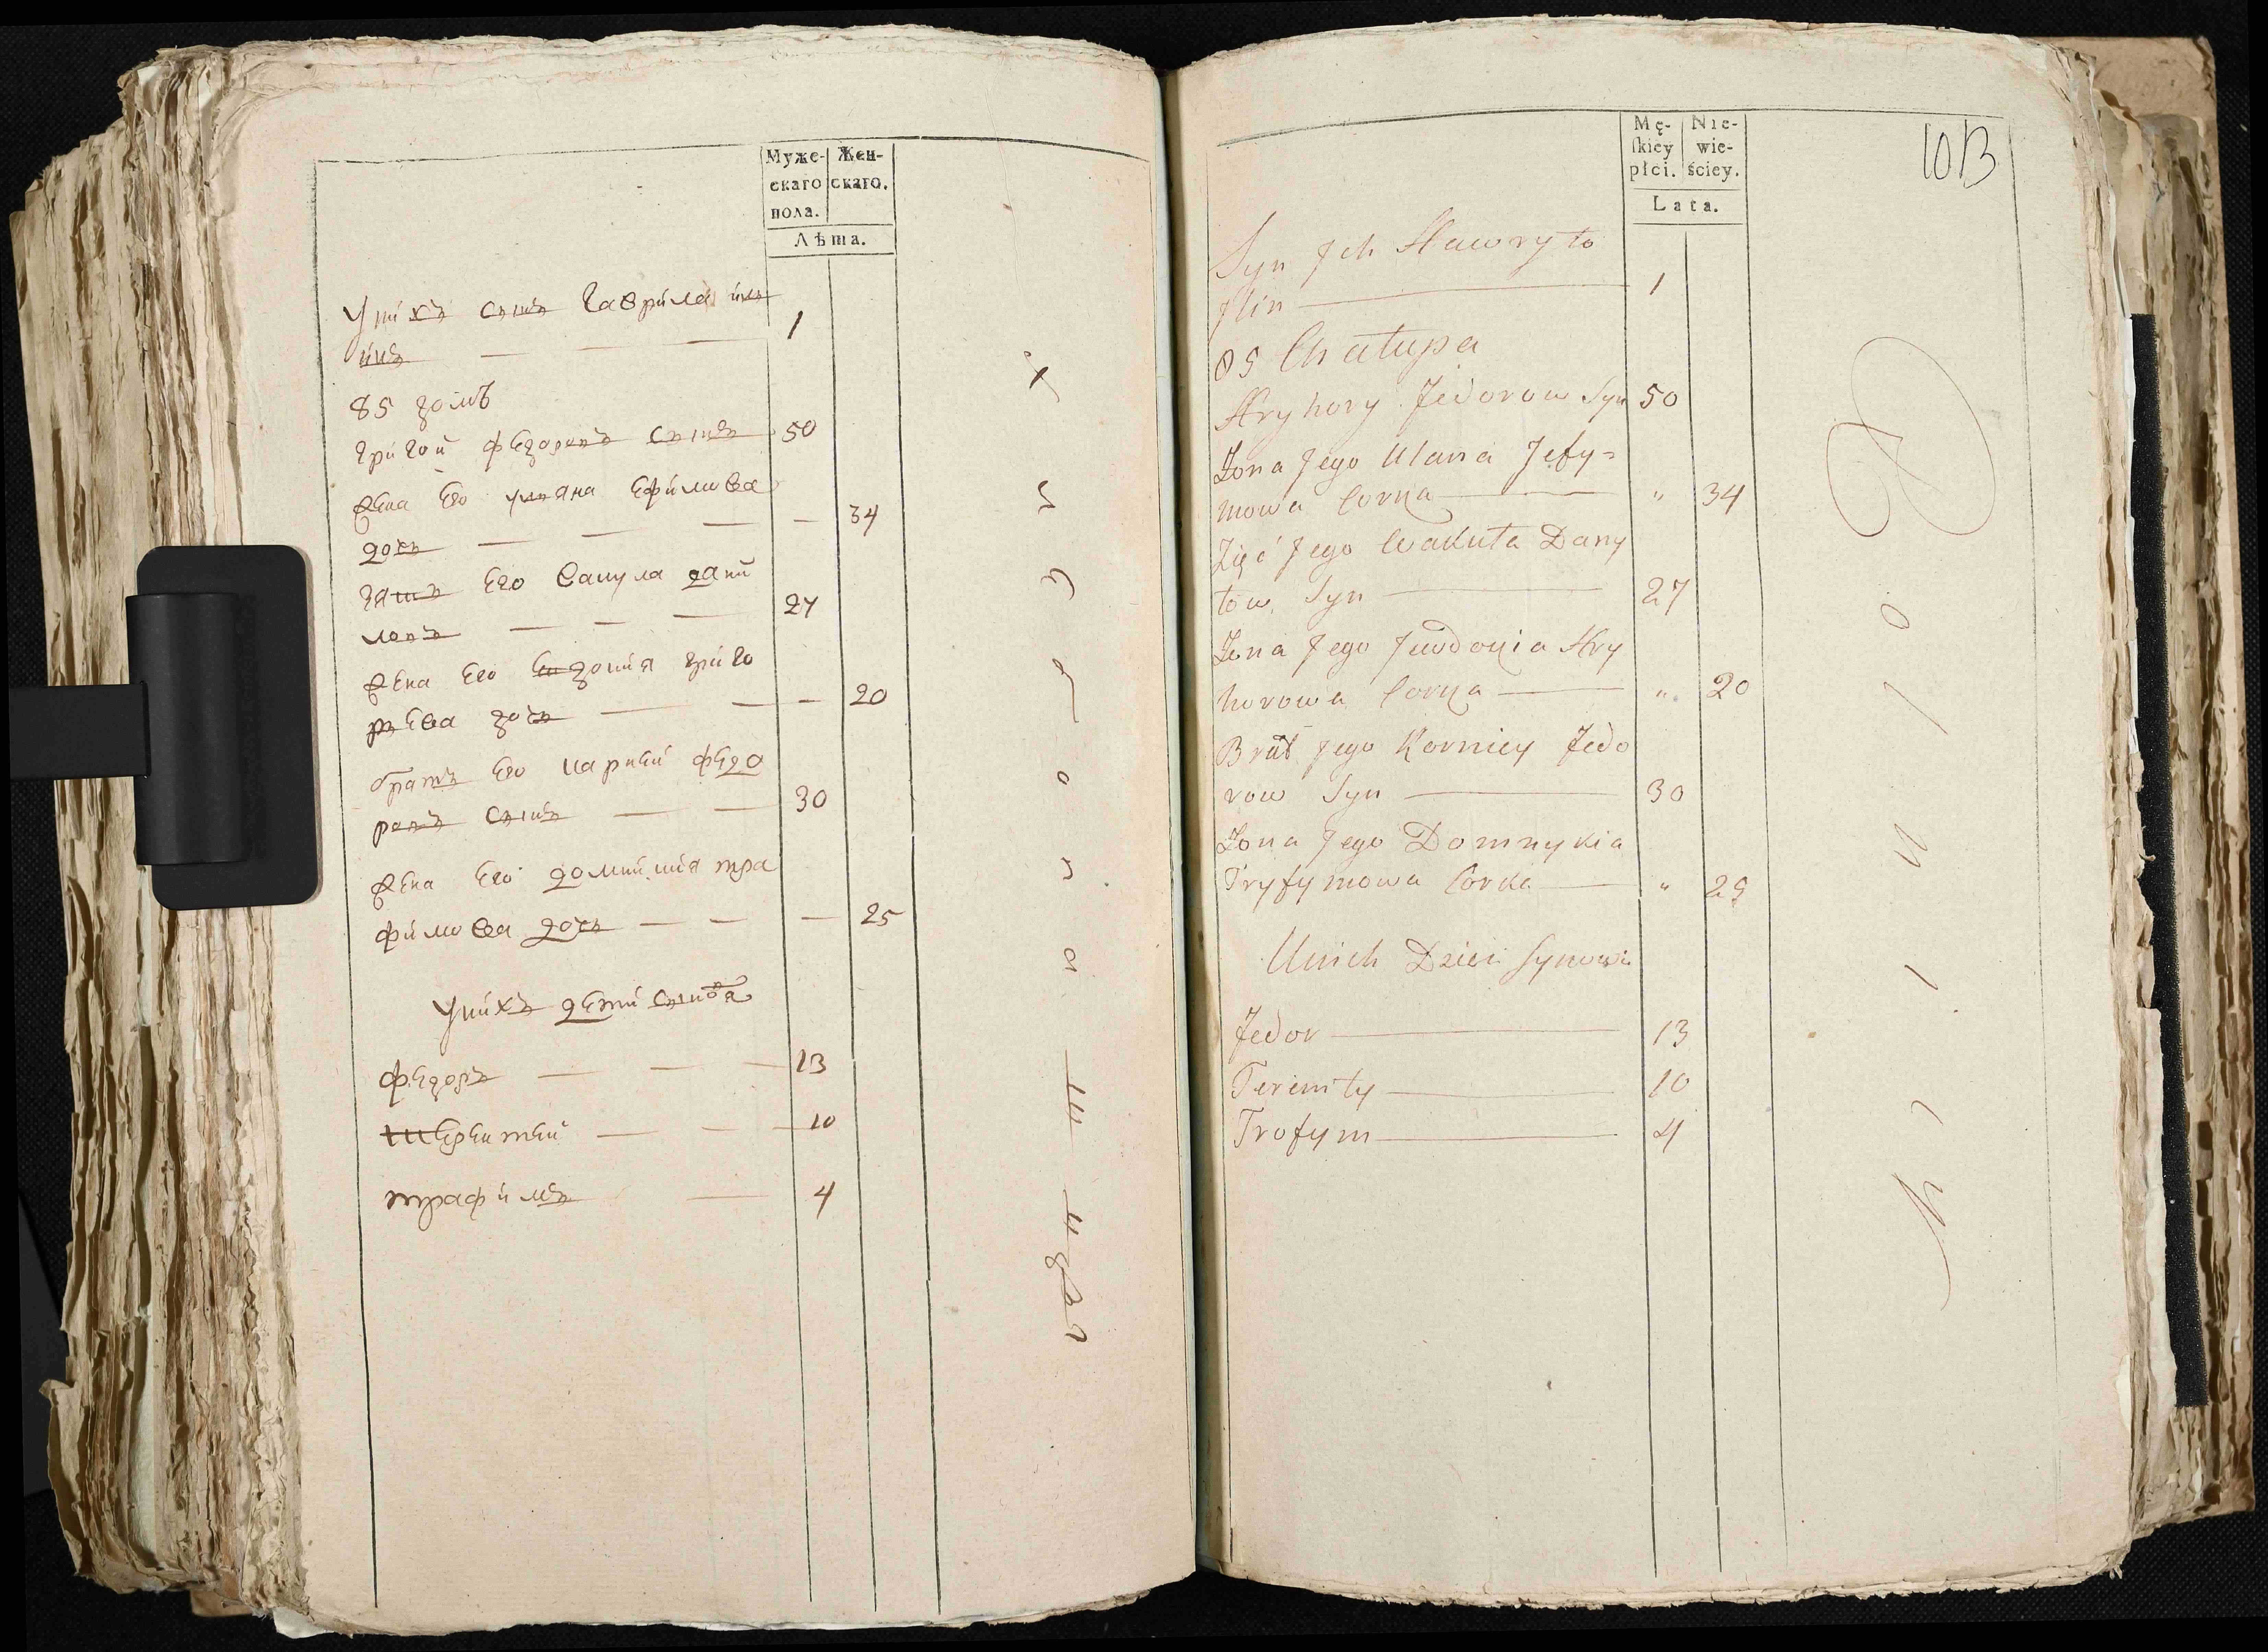 Муже-
скаго
пола.
Жен-
скаго.
Лѣта.
Уніхъ сынъ Гаврила
1
85 домъ
Григой Федоровъ сынъ 50
жена Его уляна Ефимова
дочь — — — — 34
зять Его Вакула дани
ловъ — — — 27
жена Его Евдокия григо
рьева дочь — — — 20
братъ Его карнѣй федо
ровъ сынъ — — 30
жена Его домникия тра
фимова дочь — — — 25
Уніхъ дети сыновя
федоръ — — — 13
терентей — — — 10
трафимъ — 4
Mę-
skiey
płci.
Nie-
wie-
ściey.
Lata.
1013
Syn Jch Hawryło
Jlin 1
85 Chałupa
Hryhory Fedorow Syn 50
Żona Jego Ulana Jefy=
mowa Corka " 34
Zięć Jego Wakuła Dany
łow Syn 27
Żona Jego Jewdokia Hry
horowa Corka " 20
Brat Jego Korniey Fedo
row Syn 30
Żona Jego Domnykia
Tryfymowa Corka " 25
Unich Dzieci Synowie
Fedor 13
Terenty 10
Trofym 4